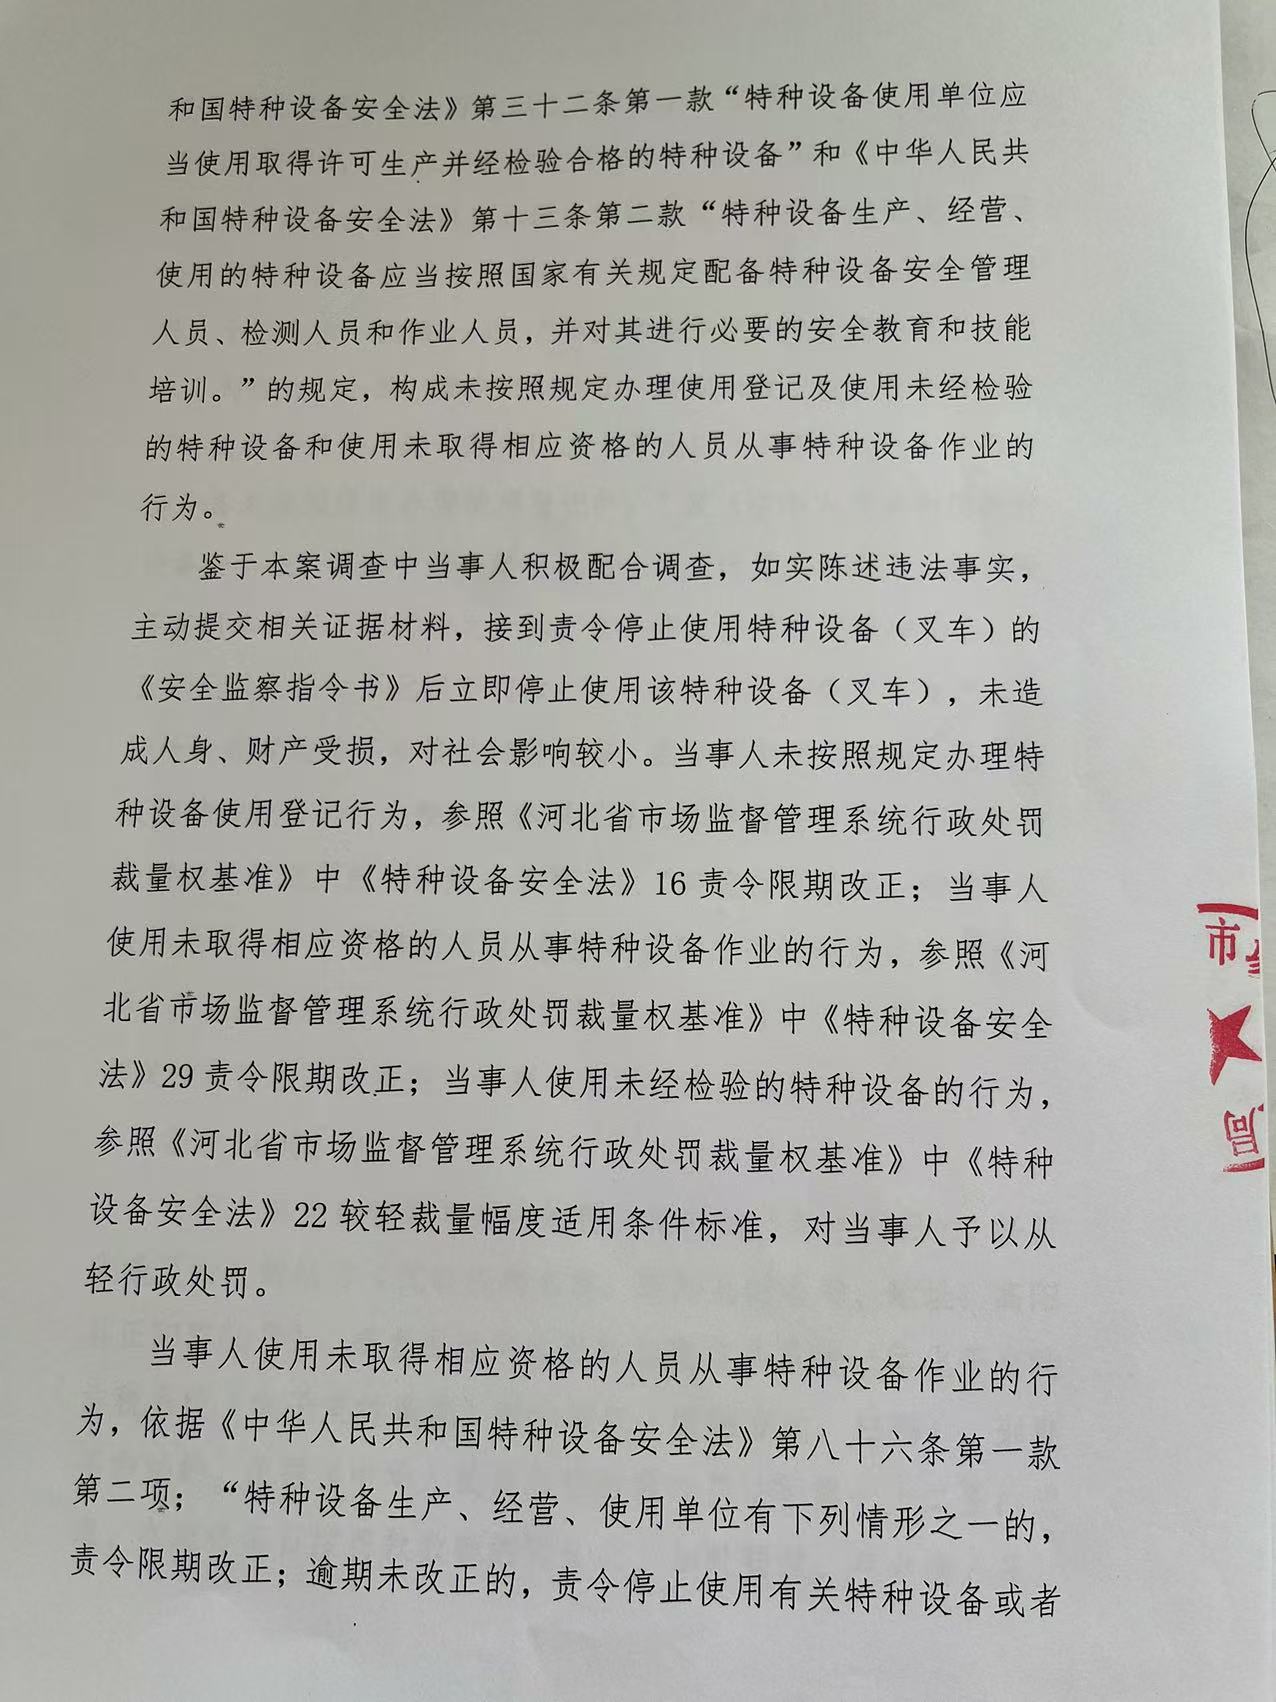 和国特种设备安全法》第三十二条第一款“特种设备使用单位应
当使用取得许可生产并经检验合格的特种设备”和《中华人民共
和国特种设备安全法》第十三条第二款“特种设备生产、经营、
使用的特种设备应当按照国家有关规定配备特种设备安全管理
人员、检测人员和作业人员，并对其进行必要的安全教育和技能
培训。”的规定，构成未按照规定办理使用登记及使用未经检验
的特种设备和使用未取得相应资格的人员从事特种设备作业的
行为。
鉴于本案调查中当事人积极配合调查，如实陈述违法事实，
主动提交相关证据材料，接到责令停止使用特种设备（叉车）的
《安全监察指令书》后立即停止使用该特种设备（叉车），未造
成人身、财产受损，对社会影响较小。当事人未按照规定办理特
种设备使用登记行为，参照《河北省市场监督管理系统行政处罚
裁量权基准》中《特种设备安全法》16 责令限期改正；当事人
使用未取得相应资格的人员从事特种设备作业的行为，参照《河
北省市场监督管理系统行政处罚裁量权基准》中《特种设备安全
法》29 责令限期改正；当事人使用未经检验的特种设备的行为，
参照《河北省市场监督管理系统行政处罚裁量权基准》中《特种
设备安全法》22 较轻裁量幅度适用条件标准，对当事人予以从
轻行政处罚。
当事人使用未取得相应资格的人员从事特种设备作业的行
为，依据《中华人民共和国特种设备安全法》第八十六条第一款
第二项；“特种设备生产、经营、使用单位有下列情形之一的，
责令限期改正；逾期未改正的，责令停止使用有关特种设备或者
市
局